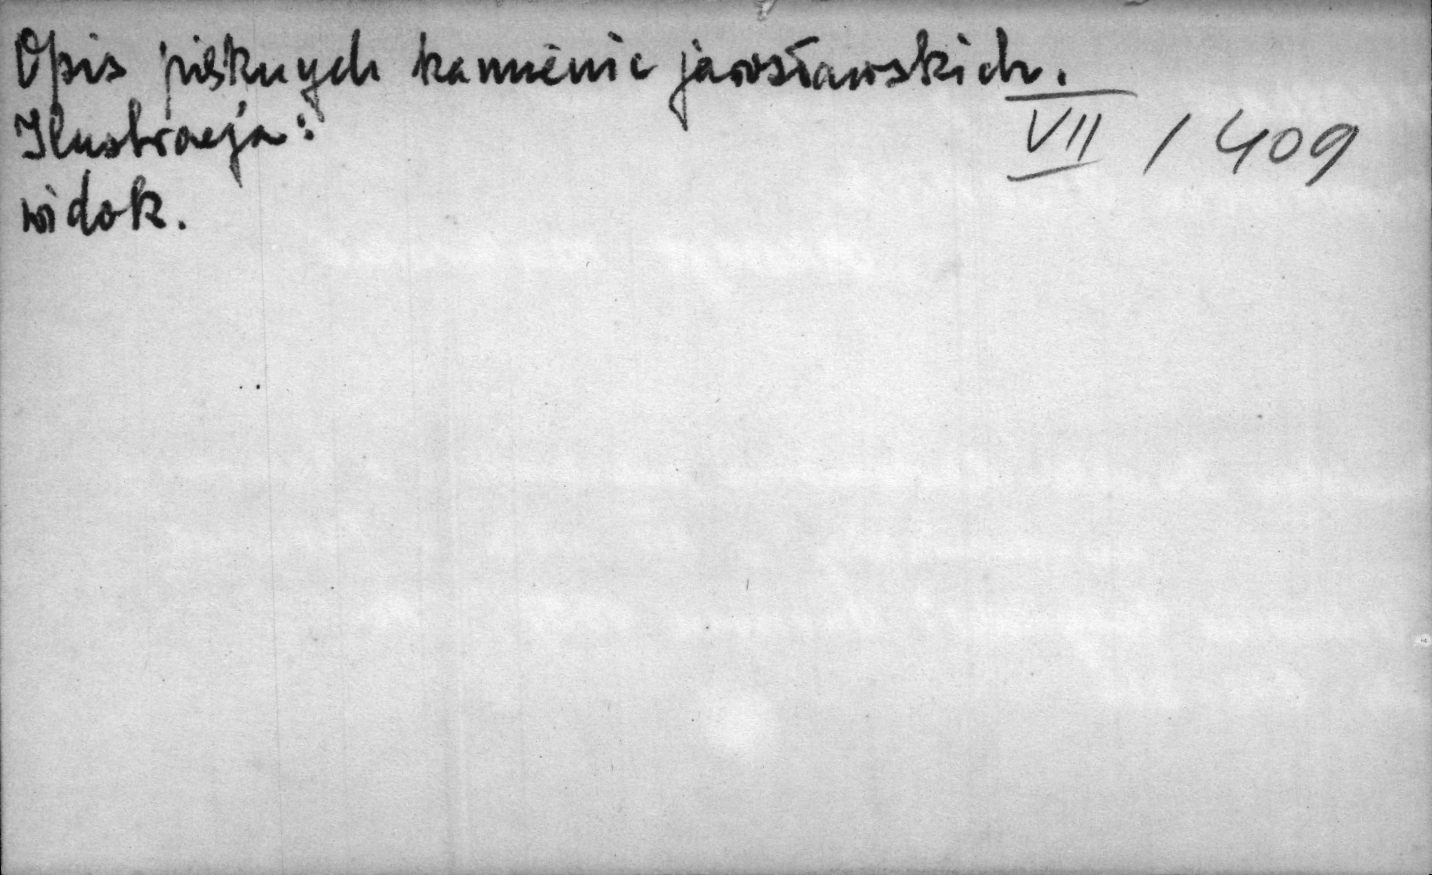 Opis pięknych kamienic jarosławskich.
Ilustracja:
VII / 409
widok.